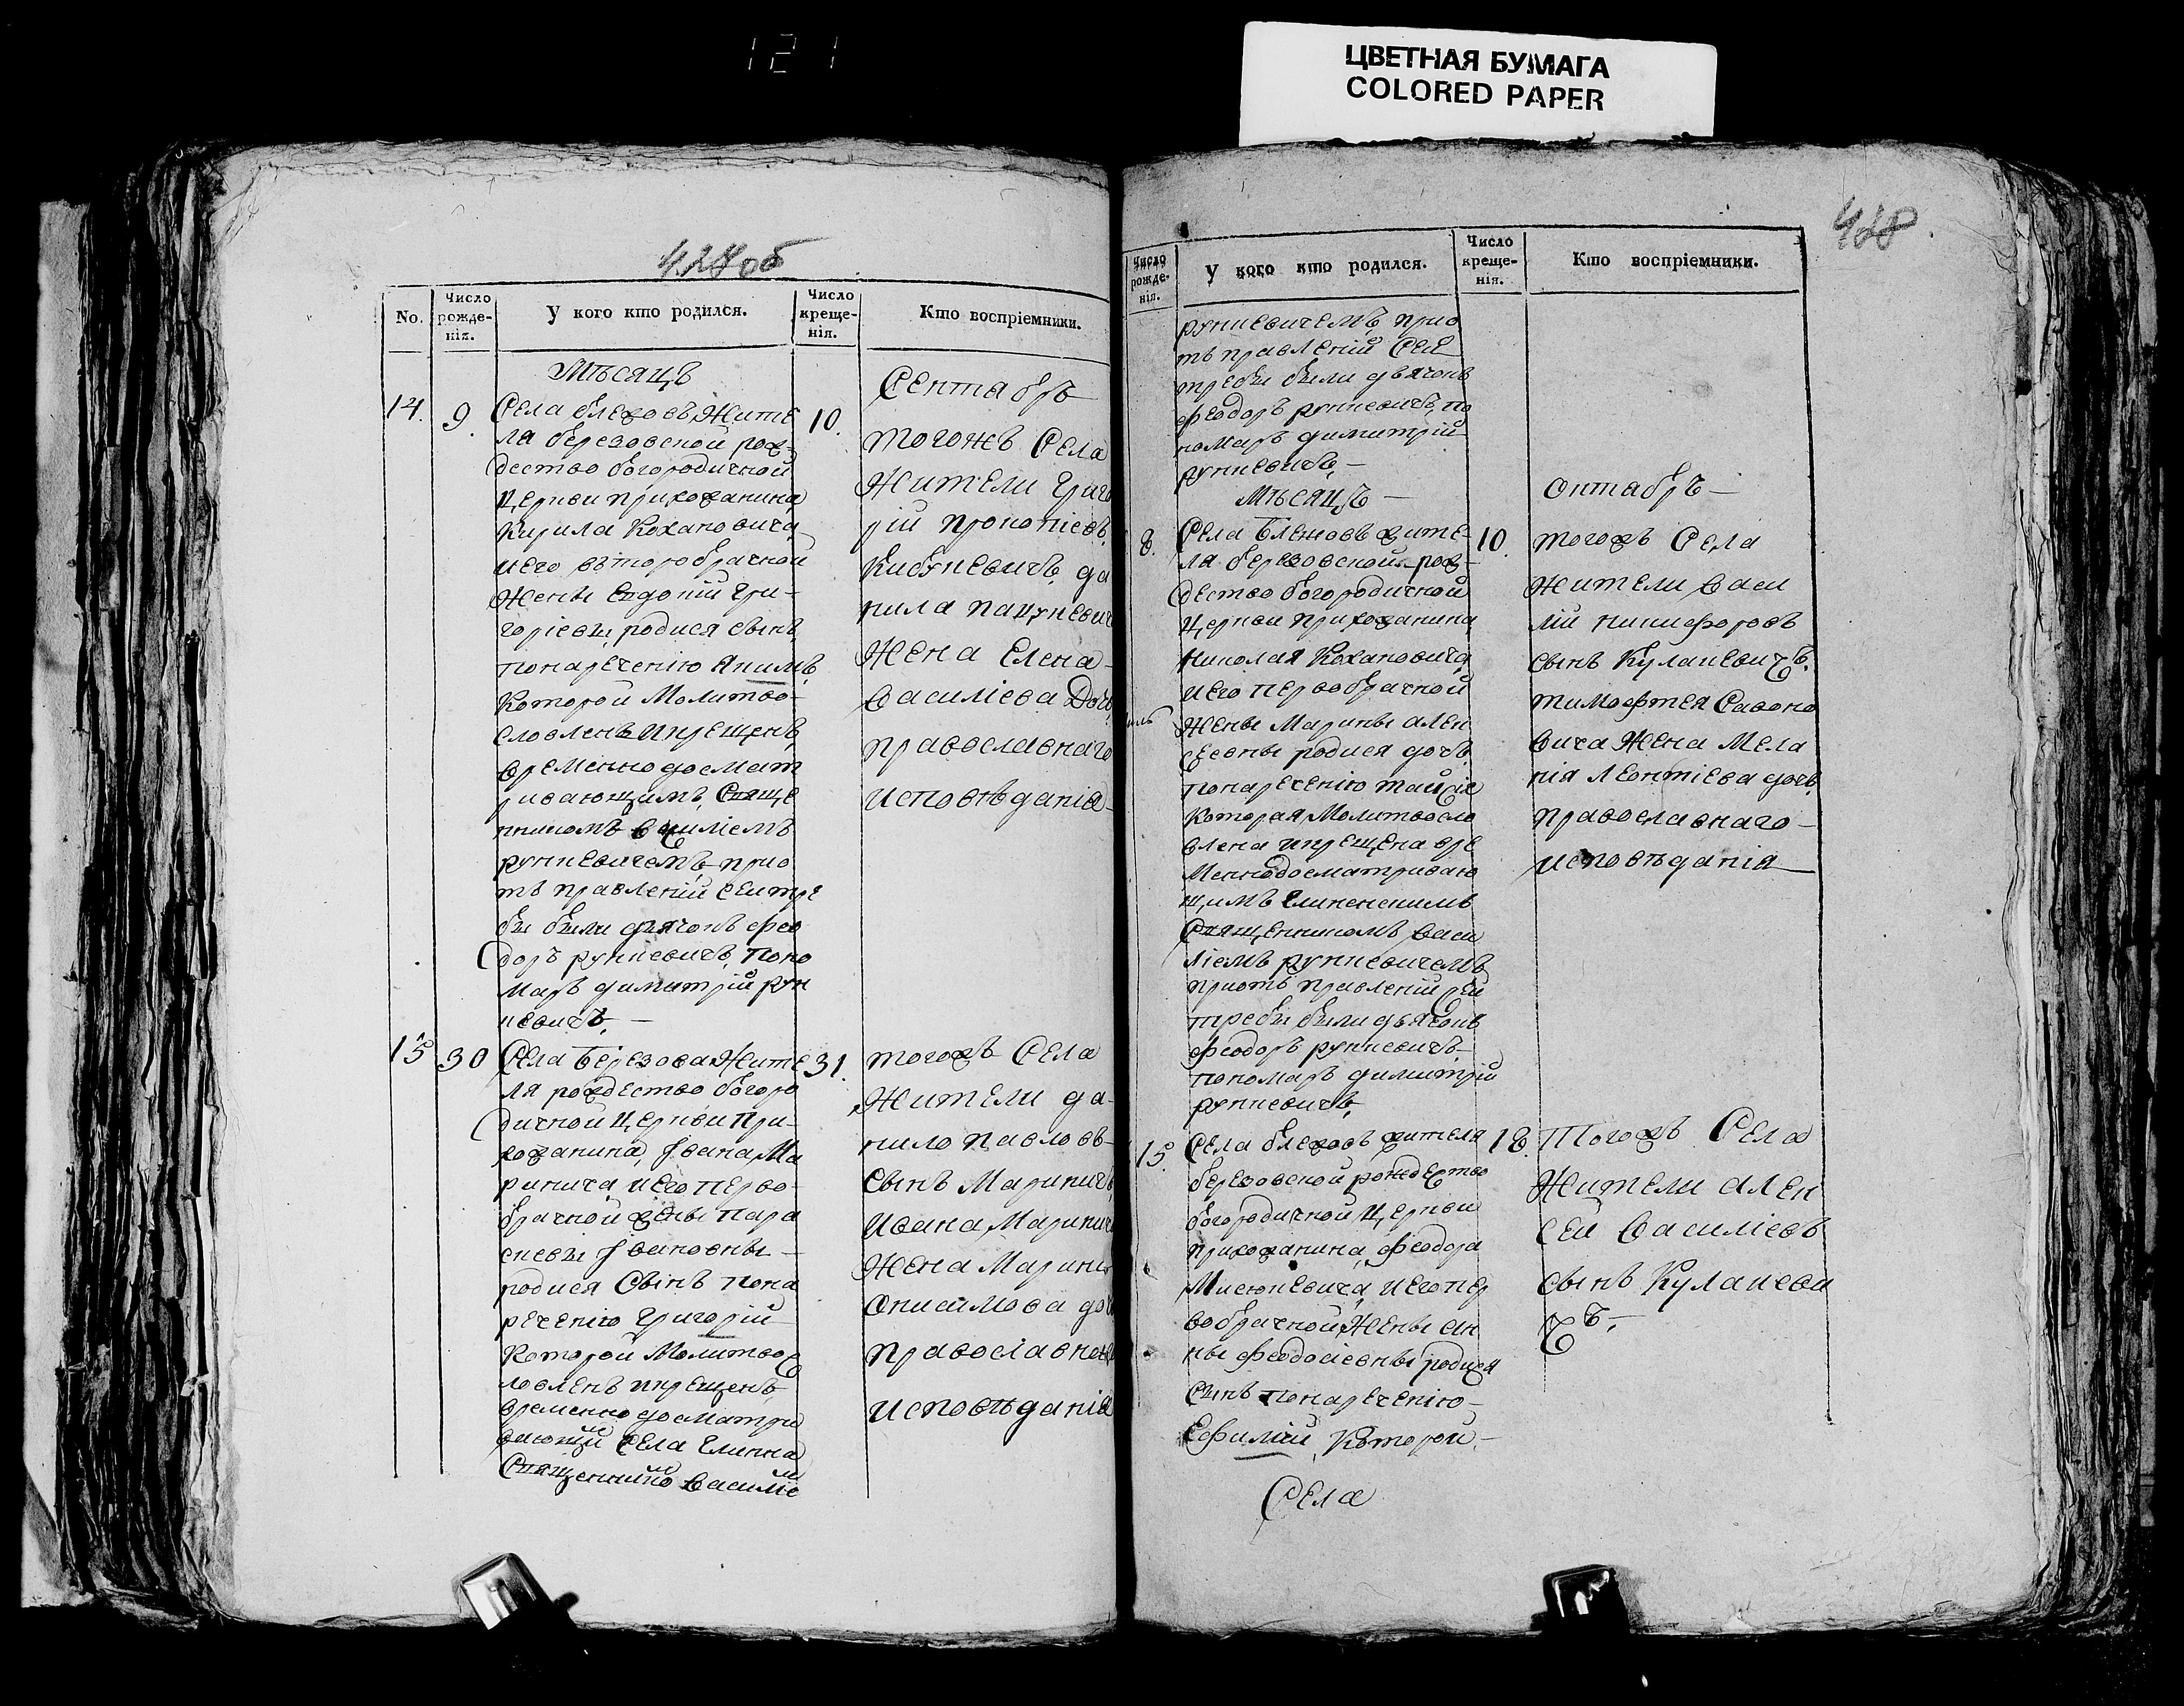 121
ЦВЕТНАЯ БУМАГА
COLORED PAPER
No.
Число рожде-нія.
У кого кто родился.
Число креще-нія.
Кто воспріемники.
Мѣсяцъ
Сентабръ
14.
9.
Села Блежовъ Жите
ля березовской рож-
дество богородичной
церкви прихожанина
Кирила Кохановича
иего второбрачной
Жены Евдокіи Гри-
горіевы родися сынъ
понареченію Якимъ
Которой Молитво-
словленъ икрещенъ
временно досмат
ривающимъ Спяще
нникомъ василіемъ
рункевичемъ, прио
тъ правленіи сеи тре
бы были дьячокъ фео
доръ рункевичъ, поно
маръ димитрій рун
кевичъ, —
10.
тогожъ Села
Жители Григо
рій прокопіевъ
Кибукевичъ, да
нила пацукевич
Жена Елена-
василіева Доч
православнаго
исповѣданія-
15
30
Села Березова Жите
ля рождество богоро
дичной церкви при-
хожанина, Івана, Ма
ринича, иего перво-
брачной жены пара
скевы Івановны-
родися Сынъ пона
реченію Григорій-
Которой Молитвос
ловленъ икрещенъ
временно досматри
вающи Села Глинна
Спященнико василіе
31.
тогожъ Села
Жители да-
нило павловъ-
Сынъ Мариничъ
Ивана Маринич
Жена Марина
Онисимова доч
православнаго
исповѣданія
Число рожде-нія.
У кого кто родился.
Число креще-нія.
Кто воспріемники.
рункевичемъ, прио
тъ правленіи Сей
требы были дьячокъ
феодоръ рункевичъ, по
номаръ димитрій
рункевичъ, —
Мѣсяцъ —
Октабръ —
8.
Села Блежовъ жите-
ля березовской рож-
дество богородичной
церкви прихожанина
Николая Кохановича
иего первобрачной
Жены Марины алек
сеевны родися дочъ
понареченію таисія
Которая Молитвосло
влена икрещена вре
Меннодосматриваю
щимъ Глинскимъ
Спященникомъ васи
ліемъ рункевичемъ
приотъ правленіи сей
требы были дьячокъ
феодоръ рункевичъ-
пономаръ димитрій
рункевичъ,
10.
тогожъ Села
Жители васи
лій никифоровъ
сынъ Кулакевичъ.
тимофтея Савоно
вича Жена Мела
нія Леонтіева дочъ
православнаго —
исповѣданія
15.
Села блежовъ жителя
березовской рождество
богородичной церкви
прихожанина, феодора
Мисюкевича, иегопер
вобрачной Жены ан
ны феодосіевны родися
сынъ понареченію-
Ефимій, Которой-
18.
Тогожъ Села
Жители алек
сей василіевъ
сынъ Кулакеви
чъ.-
Села